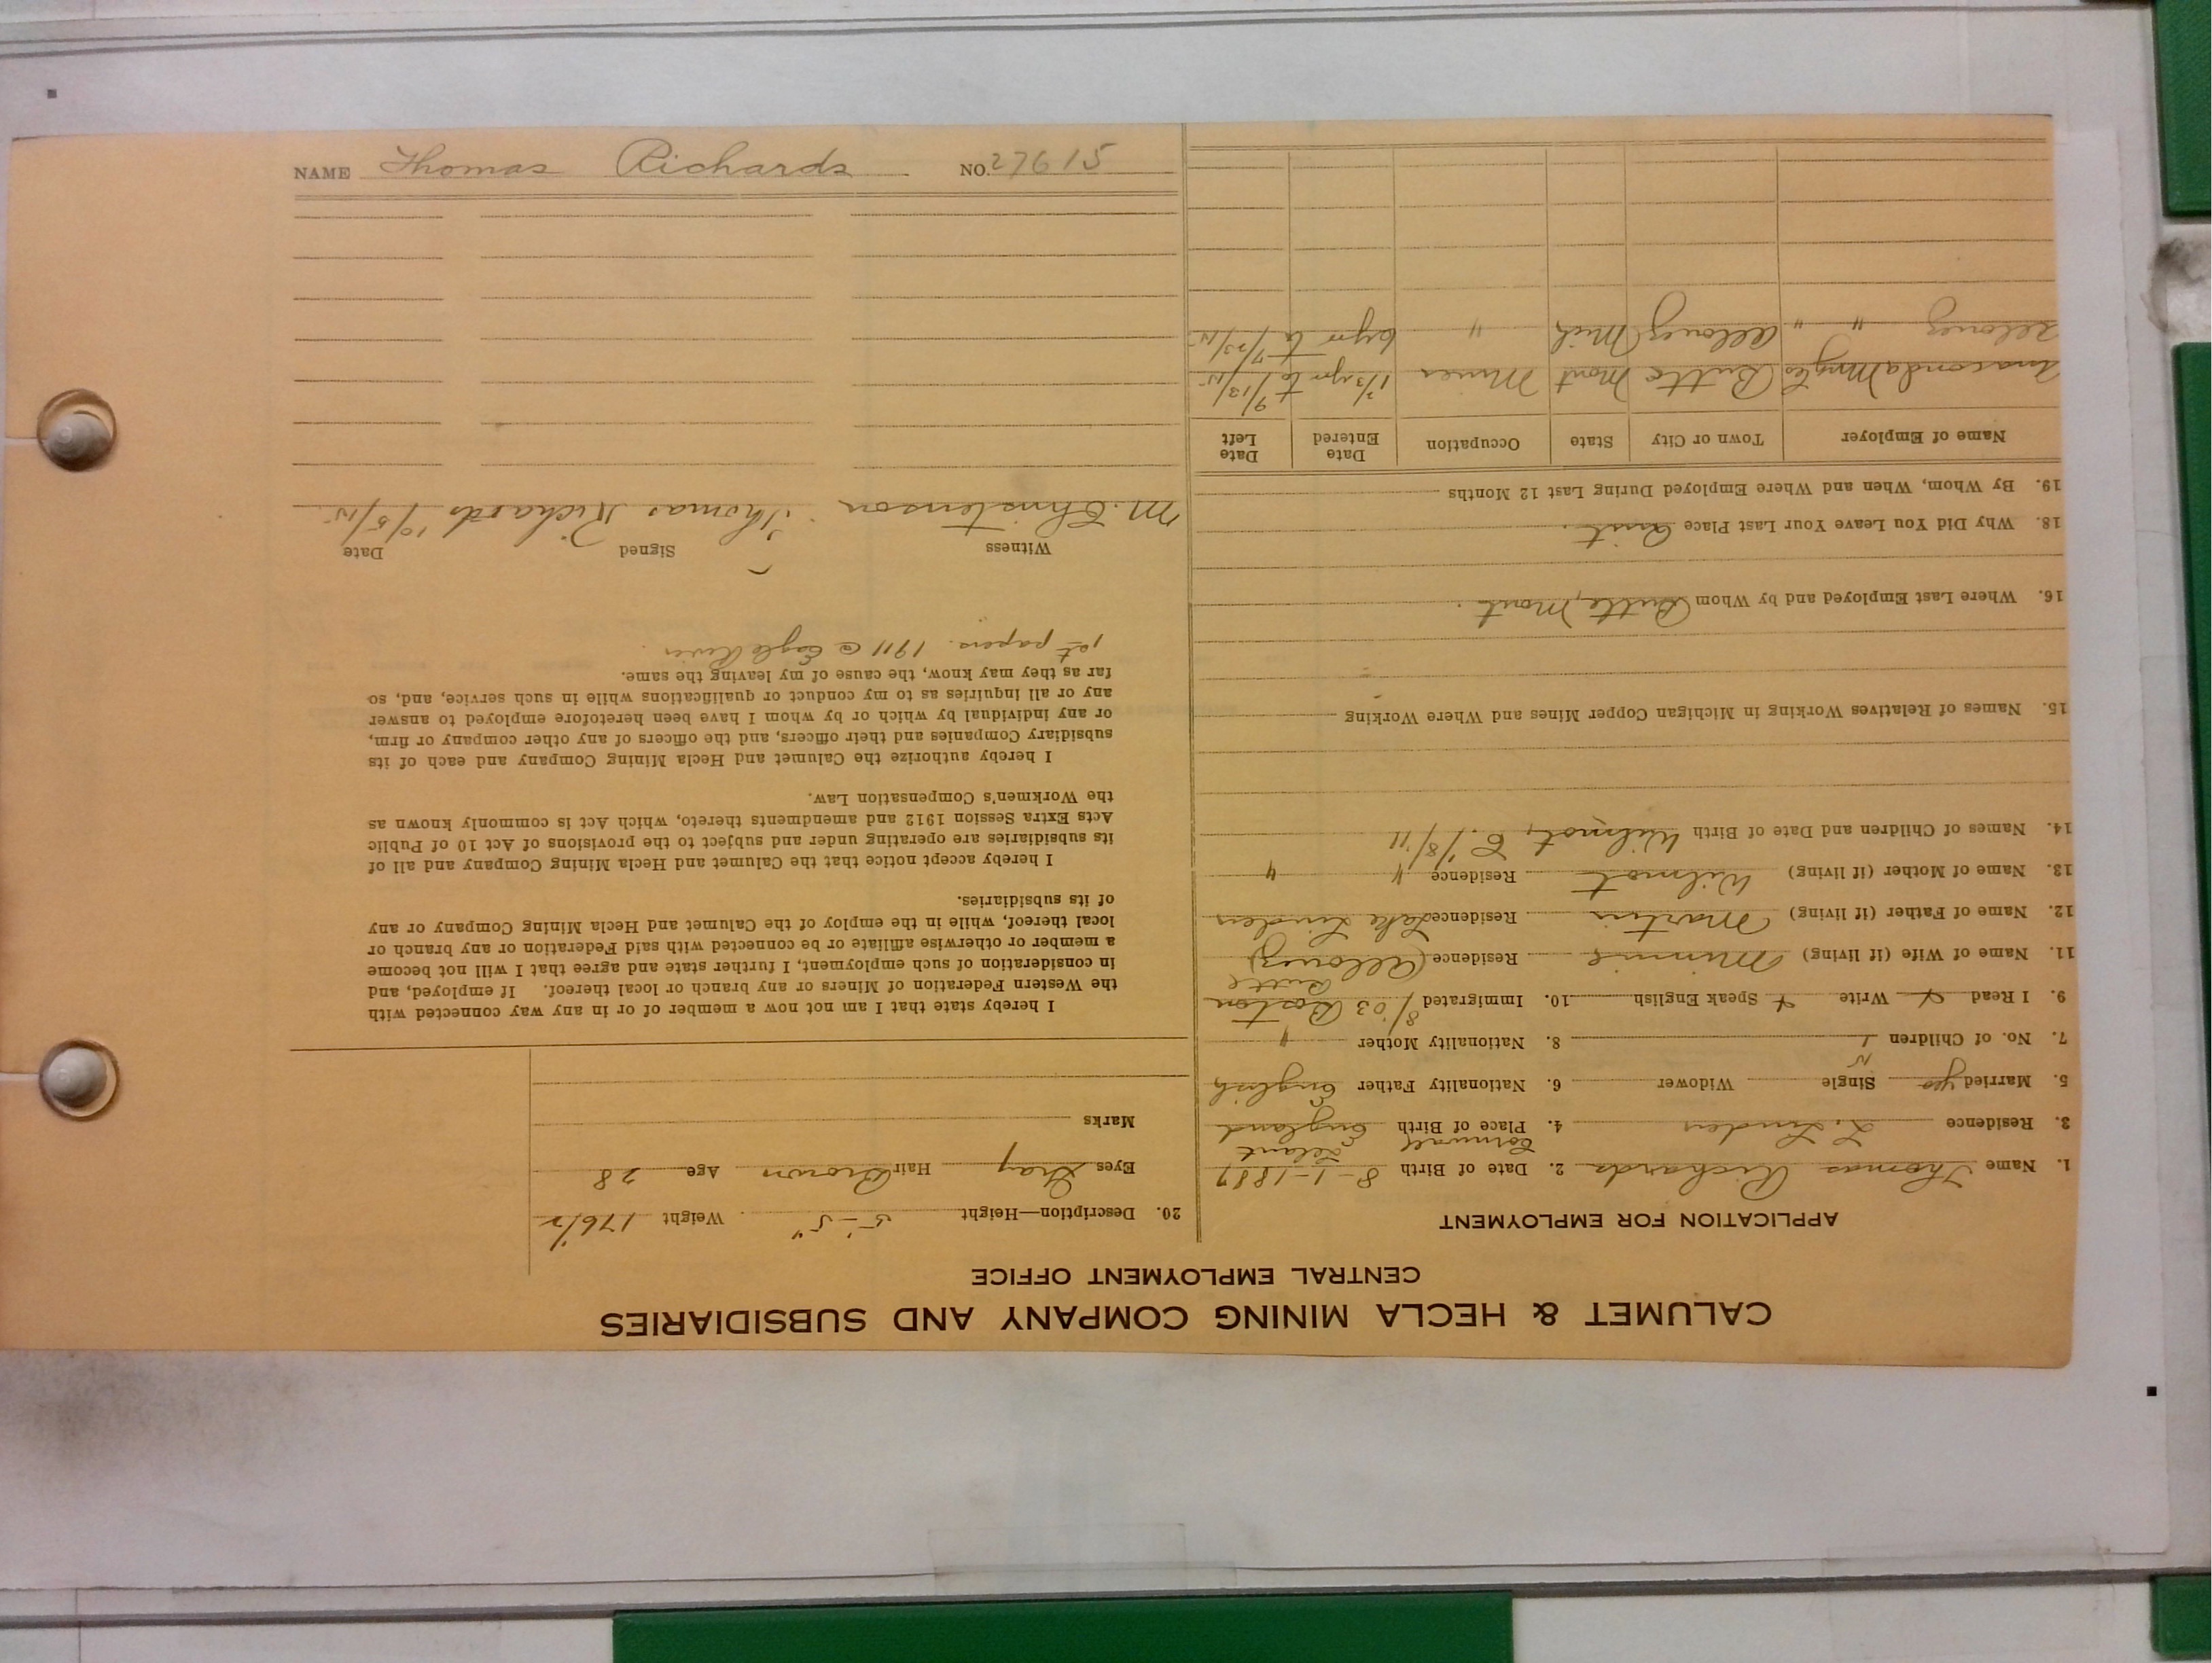 CALUMET & HECLA MINING COMPANY AND SUBSIDIARIES
CENTRAL EMPLOYMENT OFFICE
APPLICATION FOR EMPLOYMENT
1. Name Thomas Richards 2. Date of Birth 8-1-1887
Cornwall Lelant
3. Residence L. Linden 4. Place of Birth England
5. Married yes Single Widower 6. Nationality Father English
7. No. of Children 1 8. Nationality Mother "
9. I Read Write Speak English 10. Immigrated 8/'03 Boston
Butte
11. Name of Wife (if living) Minnie Residence (Allouez)
12. Name of Father (if living) Martin Residence Lake Linden
13. Name of Mother (if living) Wilmot Residence " "
14. Names of Children and Date of Birth Wilmot, 8/11
15. Names of Relatives Working in Michigan Copper Mines and Where Working -
16. Where Last Employed and by Whom Butte, Mont.
18. Why Did You Leave Your Last Place Quit.
19. By Whom, When and Where Employed During Last 12 Months
Name of Employer Town or City State Occupation Date Entered Date Left
Anaconda Mng Co Butte Mont Miner 1/3 yr to 9/13/15
Allouez " " Allouez Mich " 6 yrs to /23/15
20. Description—Height 5'-5" Weight 176 1/2
Eyes Gray Hair Brown Age 28
Marks
I hereby state that I am not now a member of or in any way connected with
the Western Federation of Miners or any branch or local thereof. If employed, and
in consideration of such employment, I further state and agree that I will not become
a member or otherwise affiliate or be connected with said Federation or any branch or
local thereof, while in the employ of the Calumet and Hecla Mining Company or any
of its subsidiaries.
I hereby accept notice that the Calumet and Hecla Mining Company and all of
its subsidiaries are operating under and subject to the provisions of Act 10 of Public
Acts Extra Session 1912 and amendments thereto, which Act is commonly known as
the Workmen's Compensation Law.
I hereby authorize the Calumet and Hecla Mining Company and each of its
subsidiary Companies and their officers, and the officers of any other company or firm,
or any individual by which or by whom I have been heretofore employed to answer
any or all inquiries as to my conduct or qualifications while in such service, and, so
far as they may know, the cause of my leaving the same.
1st papers. 1911 @ Eagle River.
Witness Signed Date
M. Christenson Thomas Richards 10/5/15
NAME Thomas Richards NO. 27615